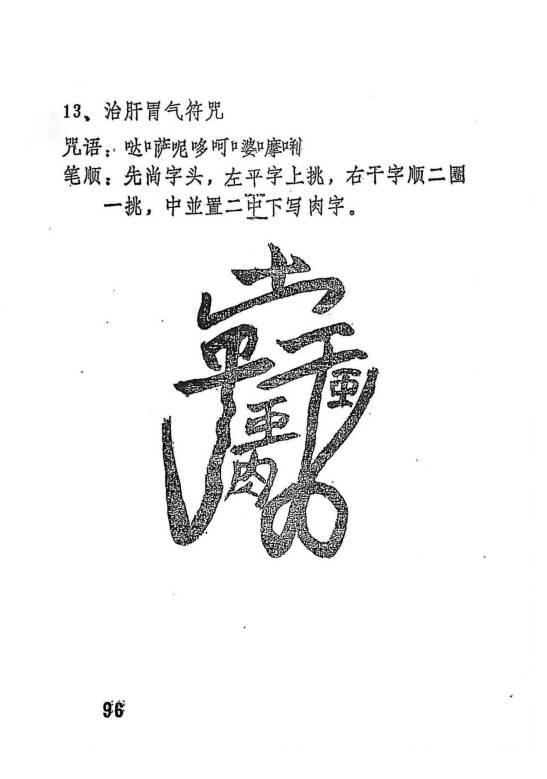 13、治肝胃气符咒
咒语:哒口萨呢哆呵口婆口摩唎
笔顺:先尚字头,左平字上挑,右干字顺二圈
一挑,中並置二中下写肉字。
96